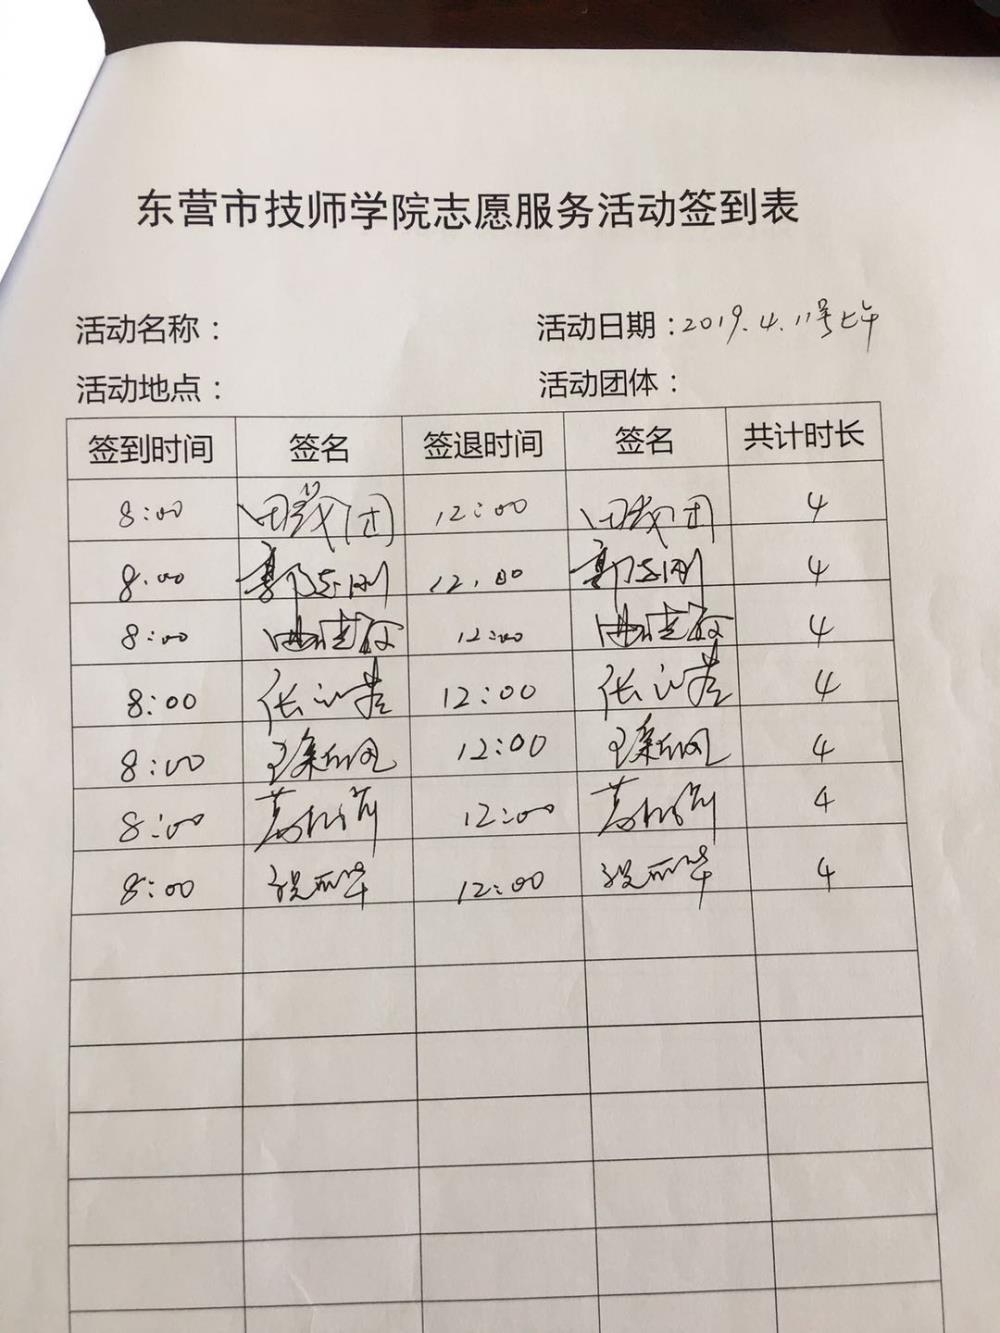 东营市技师学院志愿服务活动签到表
活动名称： 活动日期：2019.4.11号上午
活动地点： 活动团体：
签到时间 签名 签退时间 签名 共计时长
8:00 12:00 4
8:00 郭志刚 12:00 郭志刚 4
8:00 12:00 4
8:00 张 12:00 张 4
8:00 王 12:00 王 4
8:00 12:00 4
8:00 12:00 4